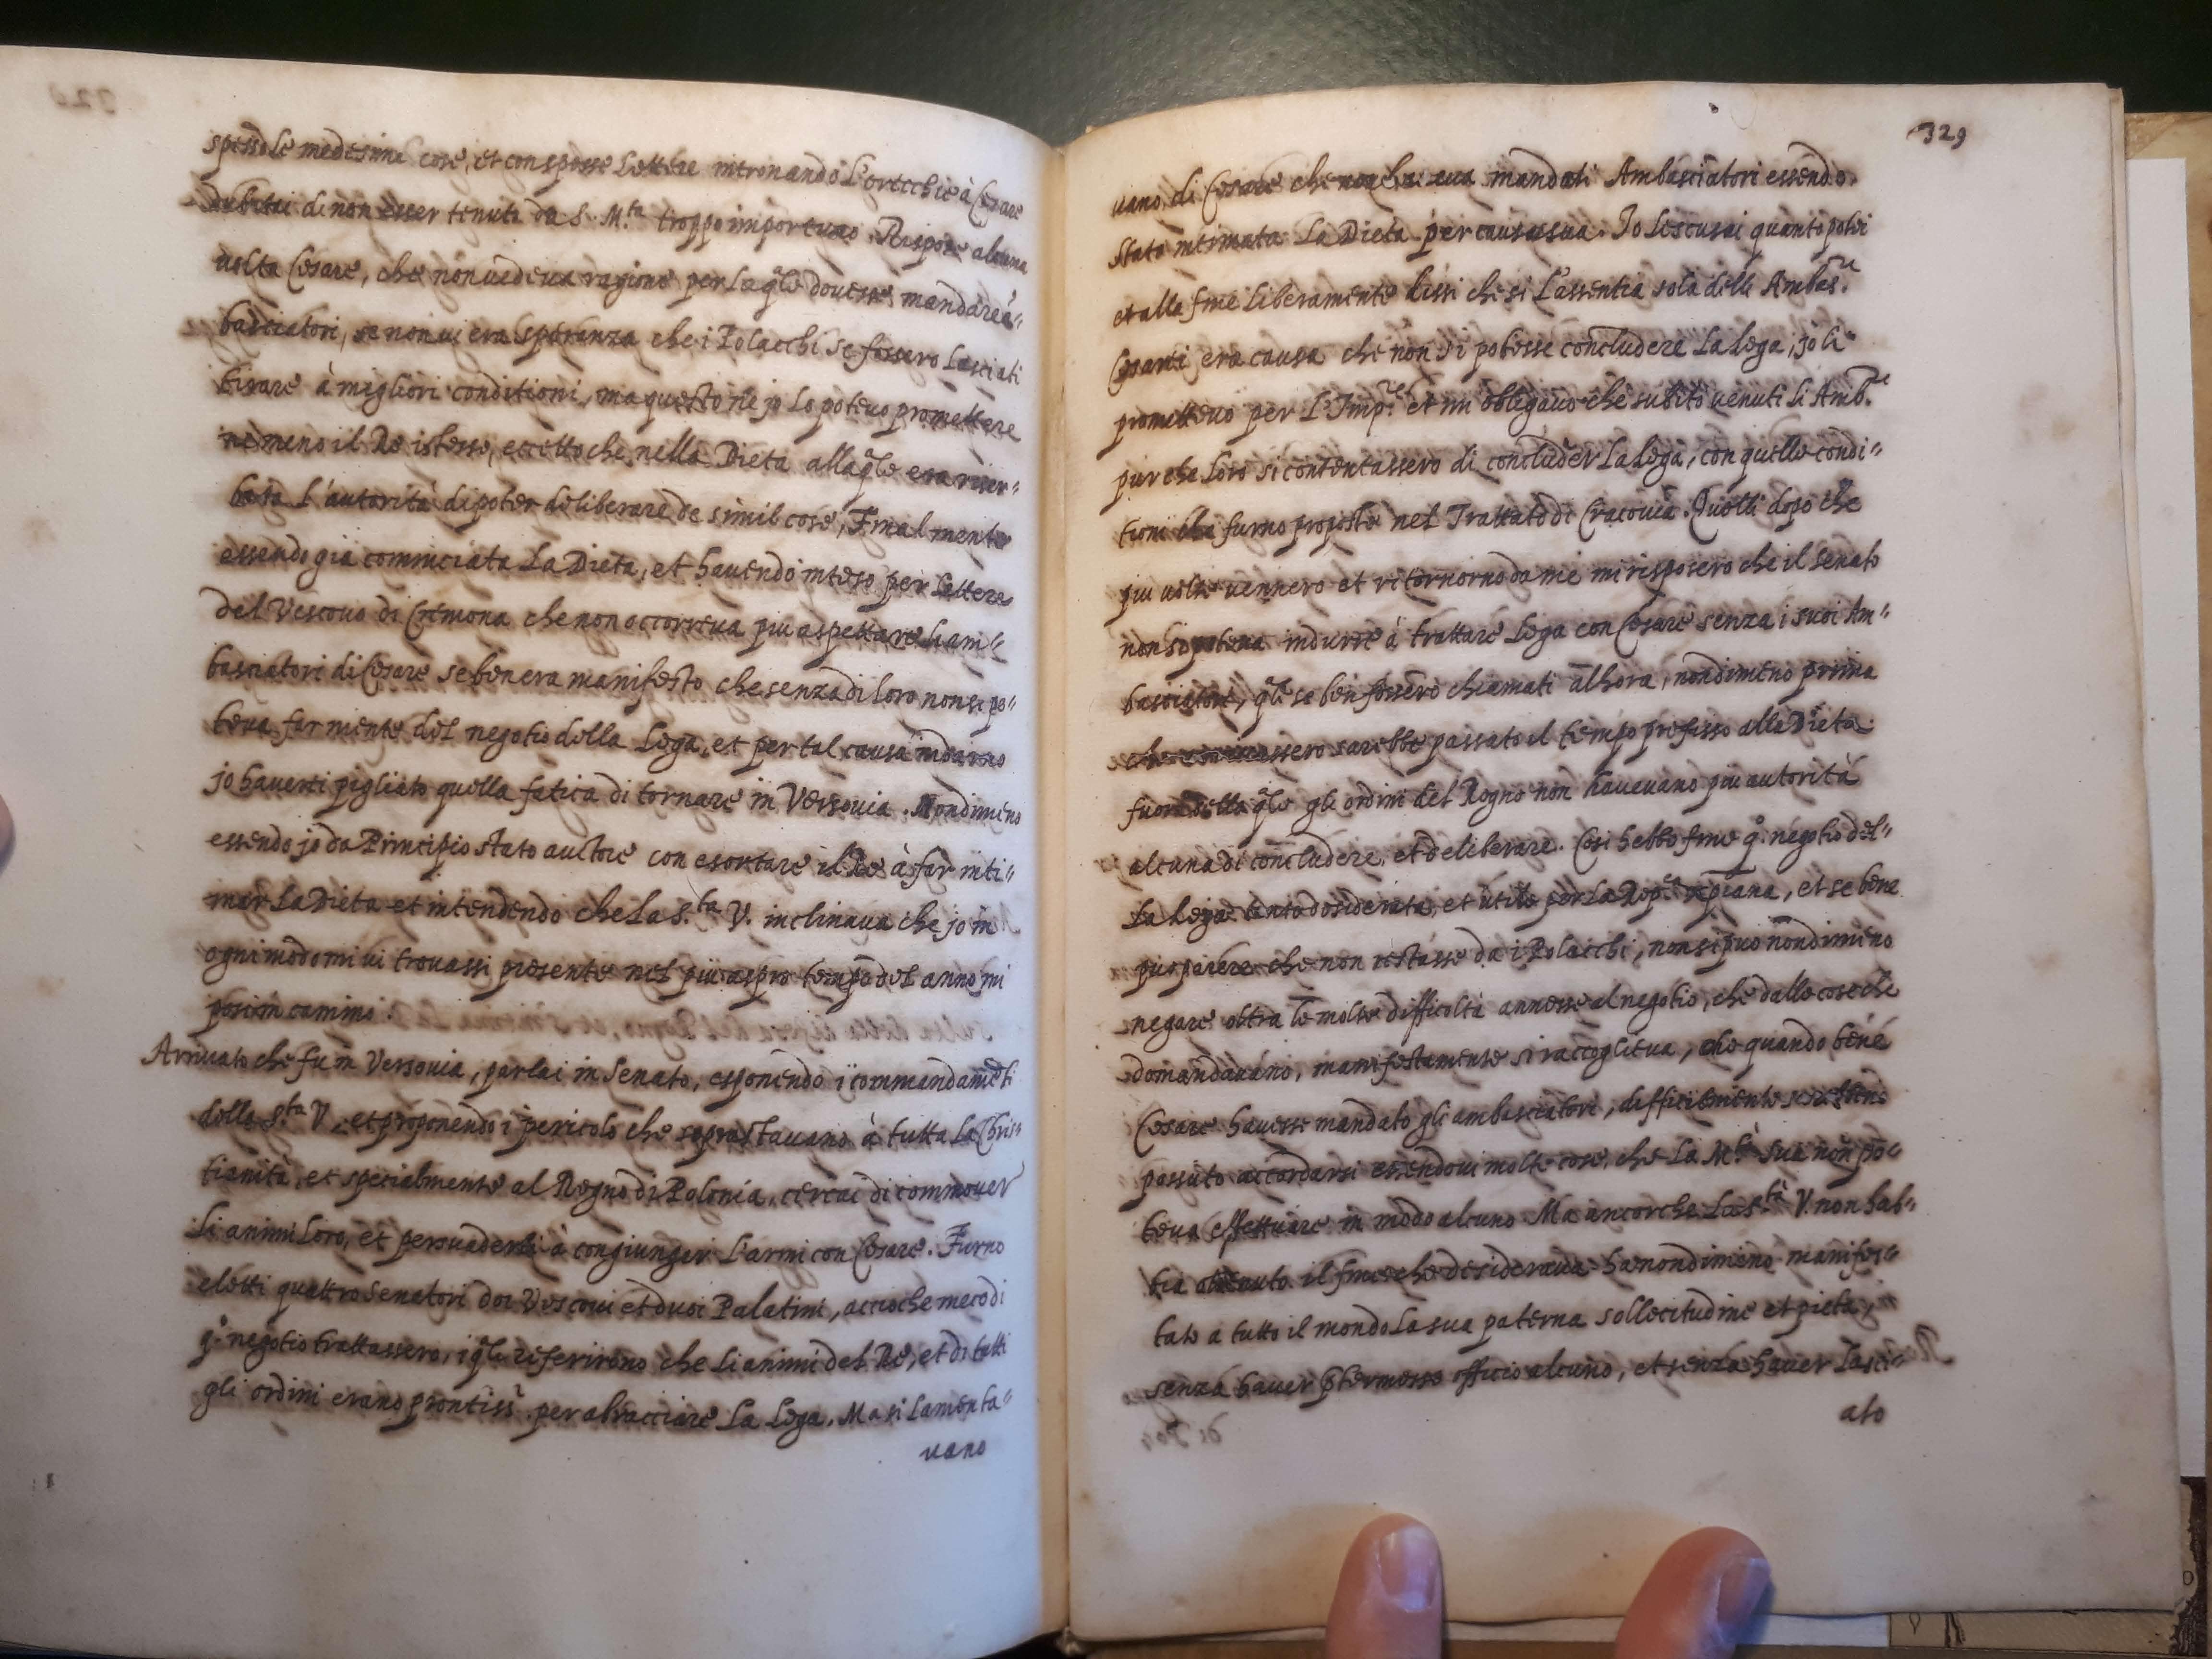 spesso le medesime cose, et con spesse lettere intronando l'orecchie à Cesare
dubitai di non esser tenuto da S. M.ta troppo importuno. Rispose alcuna
volta Cesare, che non vedeva ragione per laqle dovesse mandare ā"
basciatori, se non vi era speranza che i Polacchi se fossero lasciati
tirare à migliori conditioni, ma questo ne jo lo potevo promettere
ne meno il Re istesso, eccetto che nella Dieta allaqle era riser"
bata l'autorità di poter deliberare de simil cose, Finalmente
essendo gia cominciata la Dieta, et havendo inteso per lettere
del Vescovo di Cremona che non occorreva piu aspettare li am"
basciatori di Cesare se ben era manifesto che senza di loro non si po"
teva far niente del negotio della Lega, et per tal causa indarno
jo haverei pigliato quella fatica di tornare in Versovia. Nondimeno
essendo jo da Principio stato auttore con esortare il Re à far inti"
mar la Dieta et intendendo che la S.ta V. inclinava che jo in
ogni modo mi vi trovassi presente nel più aspro tempo del anno mi
posi in camino.
Arrivato che fu in Versovia, parlai in Senato, esponendo i commandamēti
della S.ta V. et proponendo i pericolo che soprastavano à tutta la Chris"
tianità, et specialmente al Regno di Polonia, cercai di commover
li animi loro, et persuaderli à congiunger l'armi con Cesare. Furno
eletti quattro Senatori doi Vescovi et duoi Palatini, accioche meco di
q.o negotio trattassero, i qli riferirono che li animi del Re, et di tutti
gli ordini erano prontiss.i per abracciare la Lega. Ma si lamenta"
vano
329
vano, di Cesare che non haveva mandati Ambasciatori essendo
stata intimata la Dieta per causa sua. Jo lescusai quanto potei
et alla fine liberamente dissi che si l'assentia sola delli Ambas.ri
Cesarei era causa che non si potesse concludere la Lega, jo li
promettevo per l'Imp.re et mi obligavo che subito venuti li Amb.ri
pur che loro si contentassero di concluder la Lega, con quelle condi"
tioni che furno proposte nel Trattato di Cracovia. Quelli dopo che
piu volte vennero et ritornorno da me mi risposero che il Senato
non si poteva indurre à trattare Lega con Cesare senza i suoi Am"
basciatori, qli se ben fossero chiamati alhora, nondimeno prima
che venissero sarebbe passato il tempo prefisso alla Dieta
fuora della qle gli ordini del Regno non havevano piu autorità
alcuna di concludere, et deliberare. Cosi hebbe fine q.o negotio del"
la Lega tanto desiderata, et utile per la Rep.ca xpiana, et se bene
puo parere che non restasse da i Polacchi, non si puo nondimeno
negare oltra le molte difficoltà annesse al negotio, che dalle cose che
domandavano, manifestamente si raccoglieva, che quando bene
Cesare havesse mandato gli ambasciatori, difficilmente si sarebbeno
possuto accordarsi essendovi molte cose, che la M.tà Sua non po"
teva effettuare in modo alcuno Ma ancorche La S.tà V. non hab"
bia ottenuto il fine che desiderava ha nondimeno manifes"
tato a tutto il mondo la sua paterna sollecitudine et pietà,
senza haver ptermesso officio alcuno, et senza haver lasci"
ato